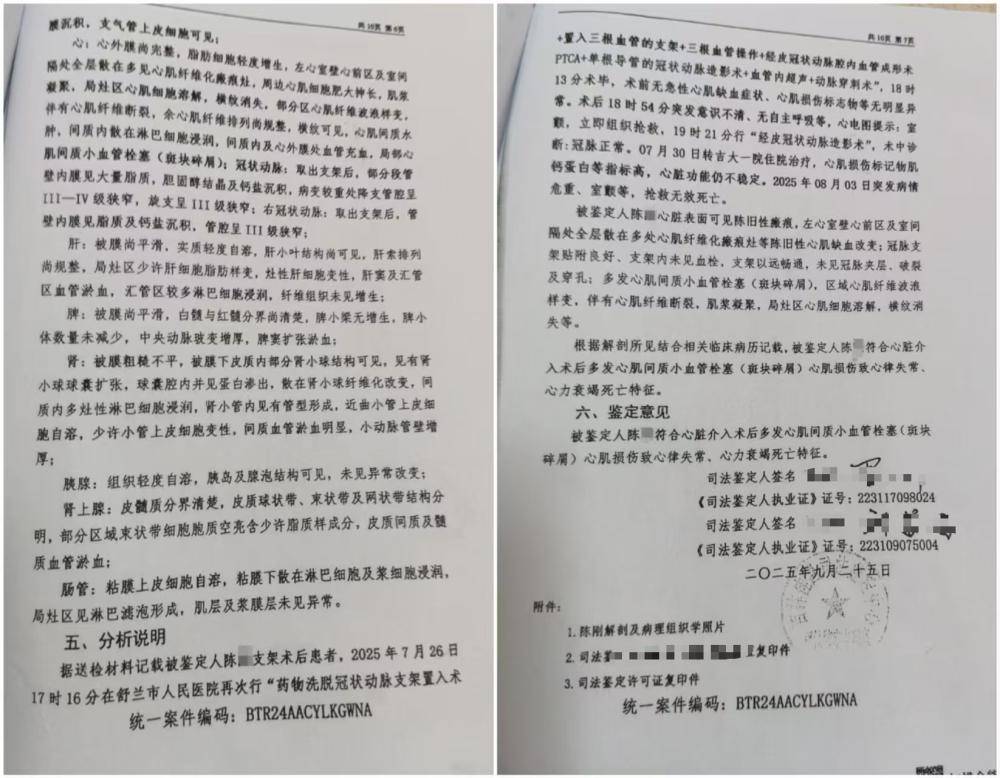 共 10页 第 6页
膜沉积，支气管上皮细胞可见；
心：心外膜尚完整，脂肪细胞轻度增生，左心室壁心前区及室间
隔处全层散在多见心肌纤维化瘢痕灶，周边心肌细胞肥大抻长，肌浆
凝聚，局灶区心肌细胞溶解，横纹消失，部分区心肌纤维波液样变，
伴有心肌纤维断裂，余心肌纤维排列尚规整，横纹可见，心肌间质水
肿，间质内散在淋巴细胞浸润，间质内及心外膜处血管充血，局部心
肌间质小血管栓塞（斑块碎屑）；冠状动脉：取出支架后，部分段管
壁内膜见大量脂质，胆固醇结晶及钙盐沉积，病变较重处降支管腔呈
III—IV 级狭窄，旋支呈 III 级狭窄；右冠状动脉：取出支架后，管
壁内膜见脂质及钙盐沉积，管腔呈 III 级狭窄；
肝：被膜尚平滑，实质轻度自溶，肝小叶结构尚可见，肝索排列
尚规整，局灶区少许肝细胞脂肪样变，灶性肝细胞变性，肝窦及汇管
区血管淤血，汇管区较多淋巴细胞浸润，纤维组织未见增生；
脾：被膜尚平滑，白髓与红髓分界尚清楚，脾小梁无增生，脾小
体数量未减少，中央动脉玻变增厚，脾窦扩张淤血；
肾：被膜粗糙不平，被膜下皮质内部分肾小球结构可见，见有肾
小球球囊扩张，球囊腔内并见蛋白渗出，散在肾小球纤维化改变，间
质内多灶性淋巴细胞浸润，肾小管内见有管型形成，近曲小管上皮细
胞自溶，少许小管上皮细胞变性，间质血管淤血明显，小动脉管壁增
厚；
胰腺：组织轻度自溶，胰岛及腺泡结构可见，未见异常改变；
肾上腺：皮髓质分界清楚，皮质球状带、束状带及网状带结构分
明，部分区域束状带细胞胞质空亮含少许脂质样成分，皮质间质及髓
质血管淤血；
肠管：粘膜上皮细胞自溶，粘膜下散在淋巴细胞及浆细胞浸润，
局灶区见淋巴滤泡形成，肌层及浆膜层未见异常。
五、分析说明
据送检材料记载被鉴定人陈 支架术后患者，2025 年 7 月 26 日
17 时 16 分在舒兰市人民医院再次行“药物洗脱冠状动脉支架置入术
统一案件编码：BTR24AACYLKGWNA
共 10页 第 7页
+置入三根血管的支架+三根血管操作+经皮冠状动脉腔内血管成形术
PTCA+单根导管的冠状动脉造影术+血管内超声+动脉穿刺术”，18 时
13 分术毕，术前无急性心肌缺血症状、心肌损伤标志物等无明显异
常。术后 18 时 54 分突发意识不清、无自主呼吸等，心电图提示：室
颤，立即组织抢救，19 时 21 分行“经皮冠状动脉造影术”，术中诊
断：冠脉正常。07 月 30 日转吉大一院住院治疗，心肌损伤标记物肌
钙蛋白等指标高，心脏功能仍不稳定。2025 年 08 月 03 日突发病情
危重、室颤等，抢救无效死亡。
被鉴定人陈 心脏表面可见陈旧性瘢痕，左心室壁心前区及室间
隔处全层散在多处心肌纤维化瘢痕灶等陈旧性心肌缺血改变；冠脉支
架贴附良好、支架内未见血栓，支架以远畅通，未见冠脉夹层、破裂
及穿孔；多发心肌间质小血管栓塞（斑块碎屑），区域心肌纤维波液
样变，伴有心肌纤维断裂，肌浆凝聚，局灶区心肌细胞溶解，横纹消
失等。
根据解剖所见结合相关临床病历记载，被鉴定人陈 符合心脏介
入术后多发心肌间质小血管栓塞（斑块碎屑）心肌损伤致心律失常、
心力衰竭死亡特征。
六、鉴定意见
被鉴定人陈 符合心脏介入术后多发心肌间质小血管栓塞（斑块
碎屑）心肌损伤致心律失常、心力衰竭死亡特征。
司法鉴定人签名
《司法鉴定人执业证》证号：223117098024
司法鉴定人签名
《司法鉴定人执业证》证号：223109075004
二〇二五年九月二十五日
附件：
1.陈刚解剖及病理组织学照片
2.司法 复印件
3.司法鉴定许可证复印件
统一案件编码：BTR24AACYLKGWNA